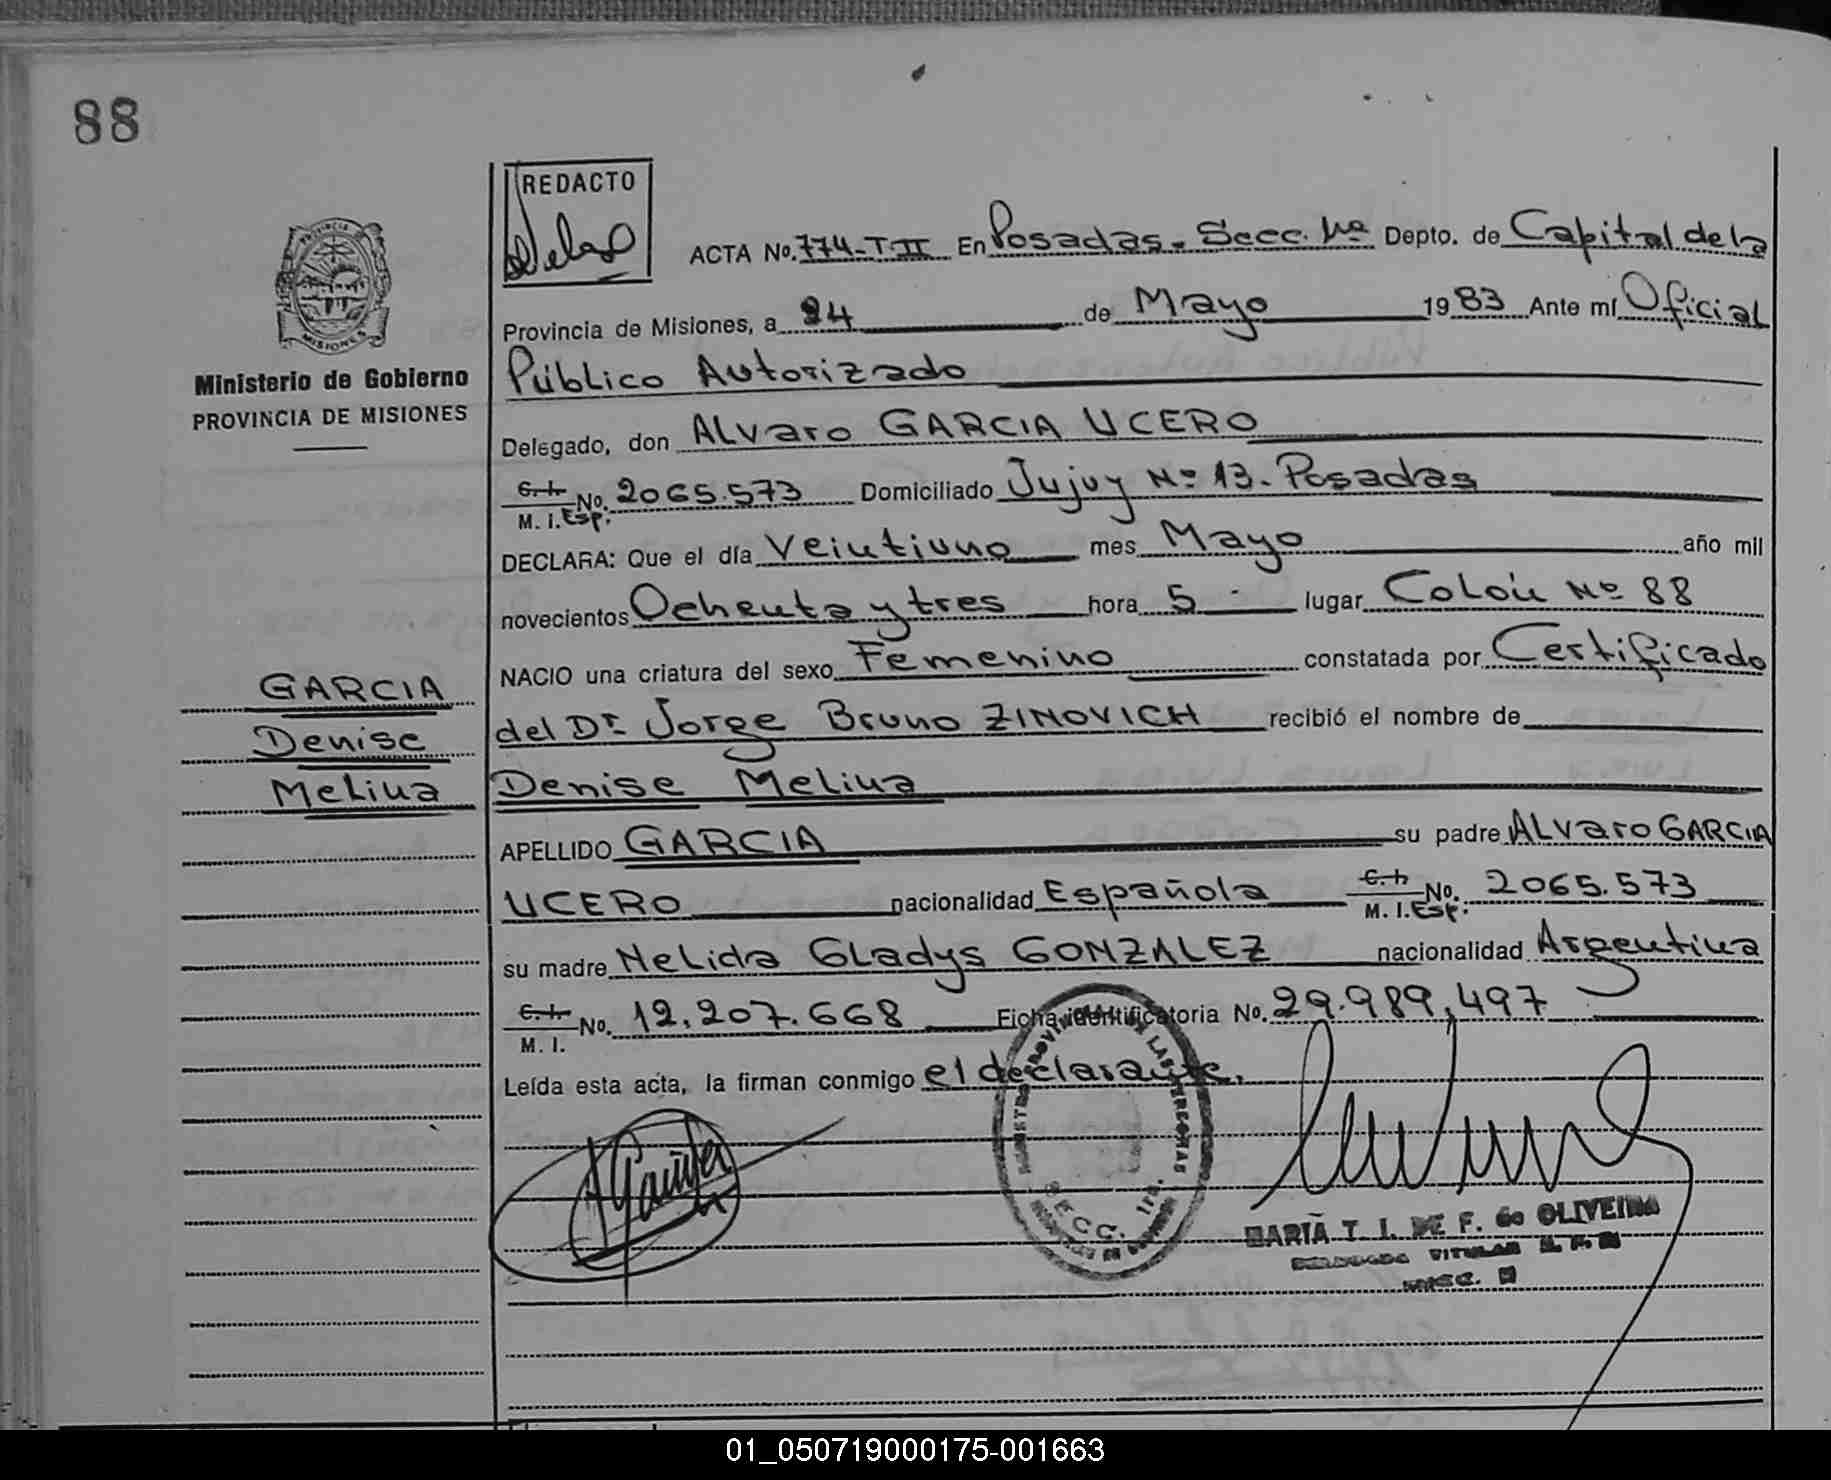 88
REDACTO
ACTA No. 774-T II En Posadas. Secc. 1ra Depto. de Capital de la
PROVINCIA DE
MISIONES
Provincia de Misiones, a 24 de Mayo 1983 Ante mí Oficial
Ministerio de Gobierno
PROVINCIA DE MISIONES
Público Autorizado
Delegado, don Alvaro GARCIA UCERO
C. I. M. I. Esp. No. 2065.573 Domiciliado Jujuy Nº 13. Posadas
DECLARA: Que el día Veintiuno mes Mayo año mil
novecientos Ochenta y tres hora 5 lugar Colón Nº 88
NACIO una criatura del sexo Femenino constatada por Certificado
GARCIA
del Dr. Jorge Bruno ZINOVICH recibió el nombre de
Denise
Melina
Denise Melina
APELLIDO GARCIA su padre Alvaro GARCIA
UCERO nacionalidad Española C. I. M. I. Esp. No. 2065.573
su madre Nelida Gladys GONZALEZ nacionalidad Argentina
C. I. M. I. No. 12.207.668 Ficha identificatoria No. 29.989.497
Leída esta acta, la firman conmigo el declarante.
REGISTRO PROVINCIAL DE LAS PERSONAS
SECC. 1ra.
MARIA T. I. DE F. de OLIVEIRA
DELEGADA TITULAR R. P. P.
01_050719000175-001663